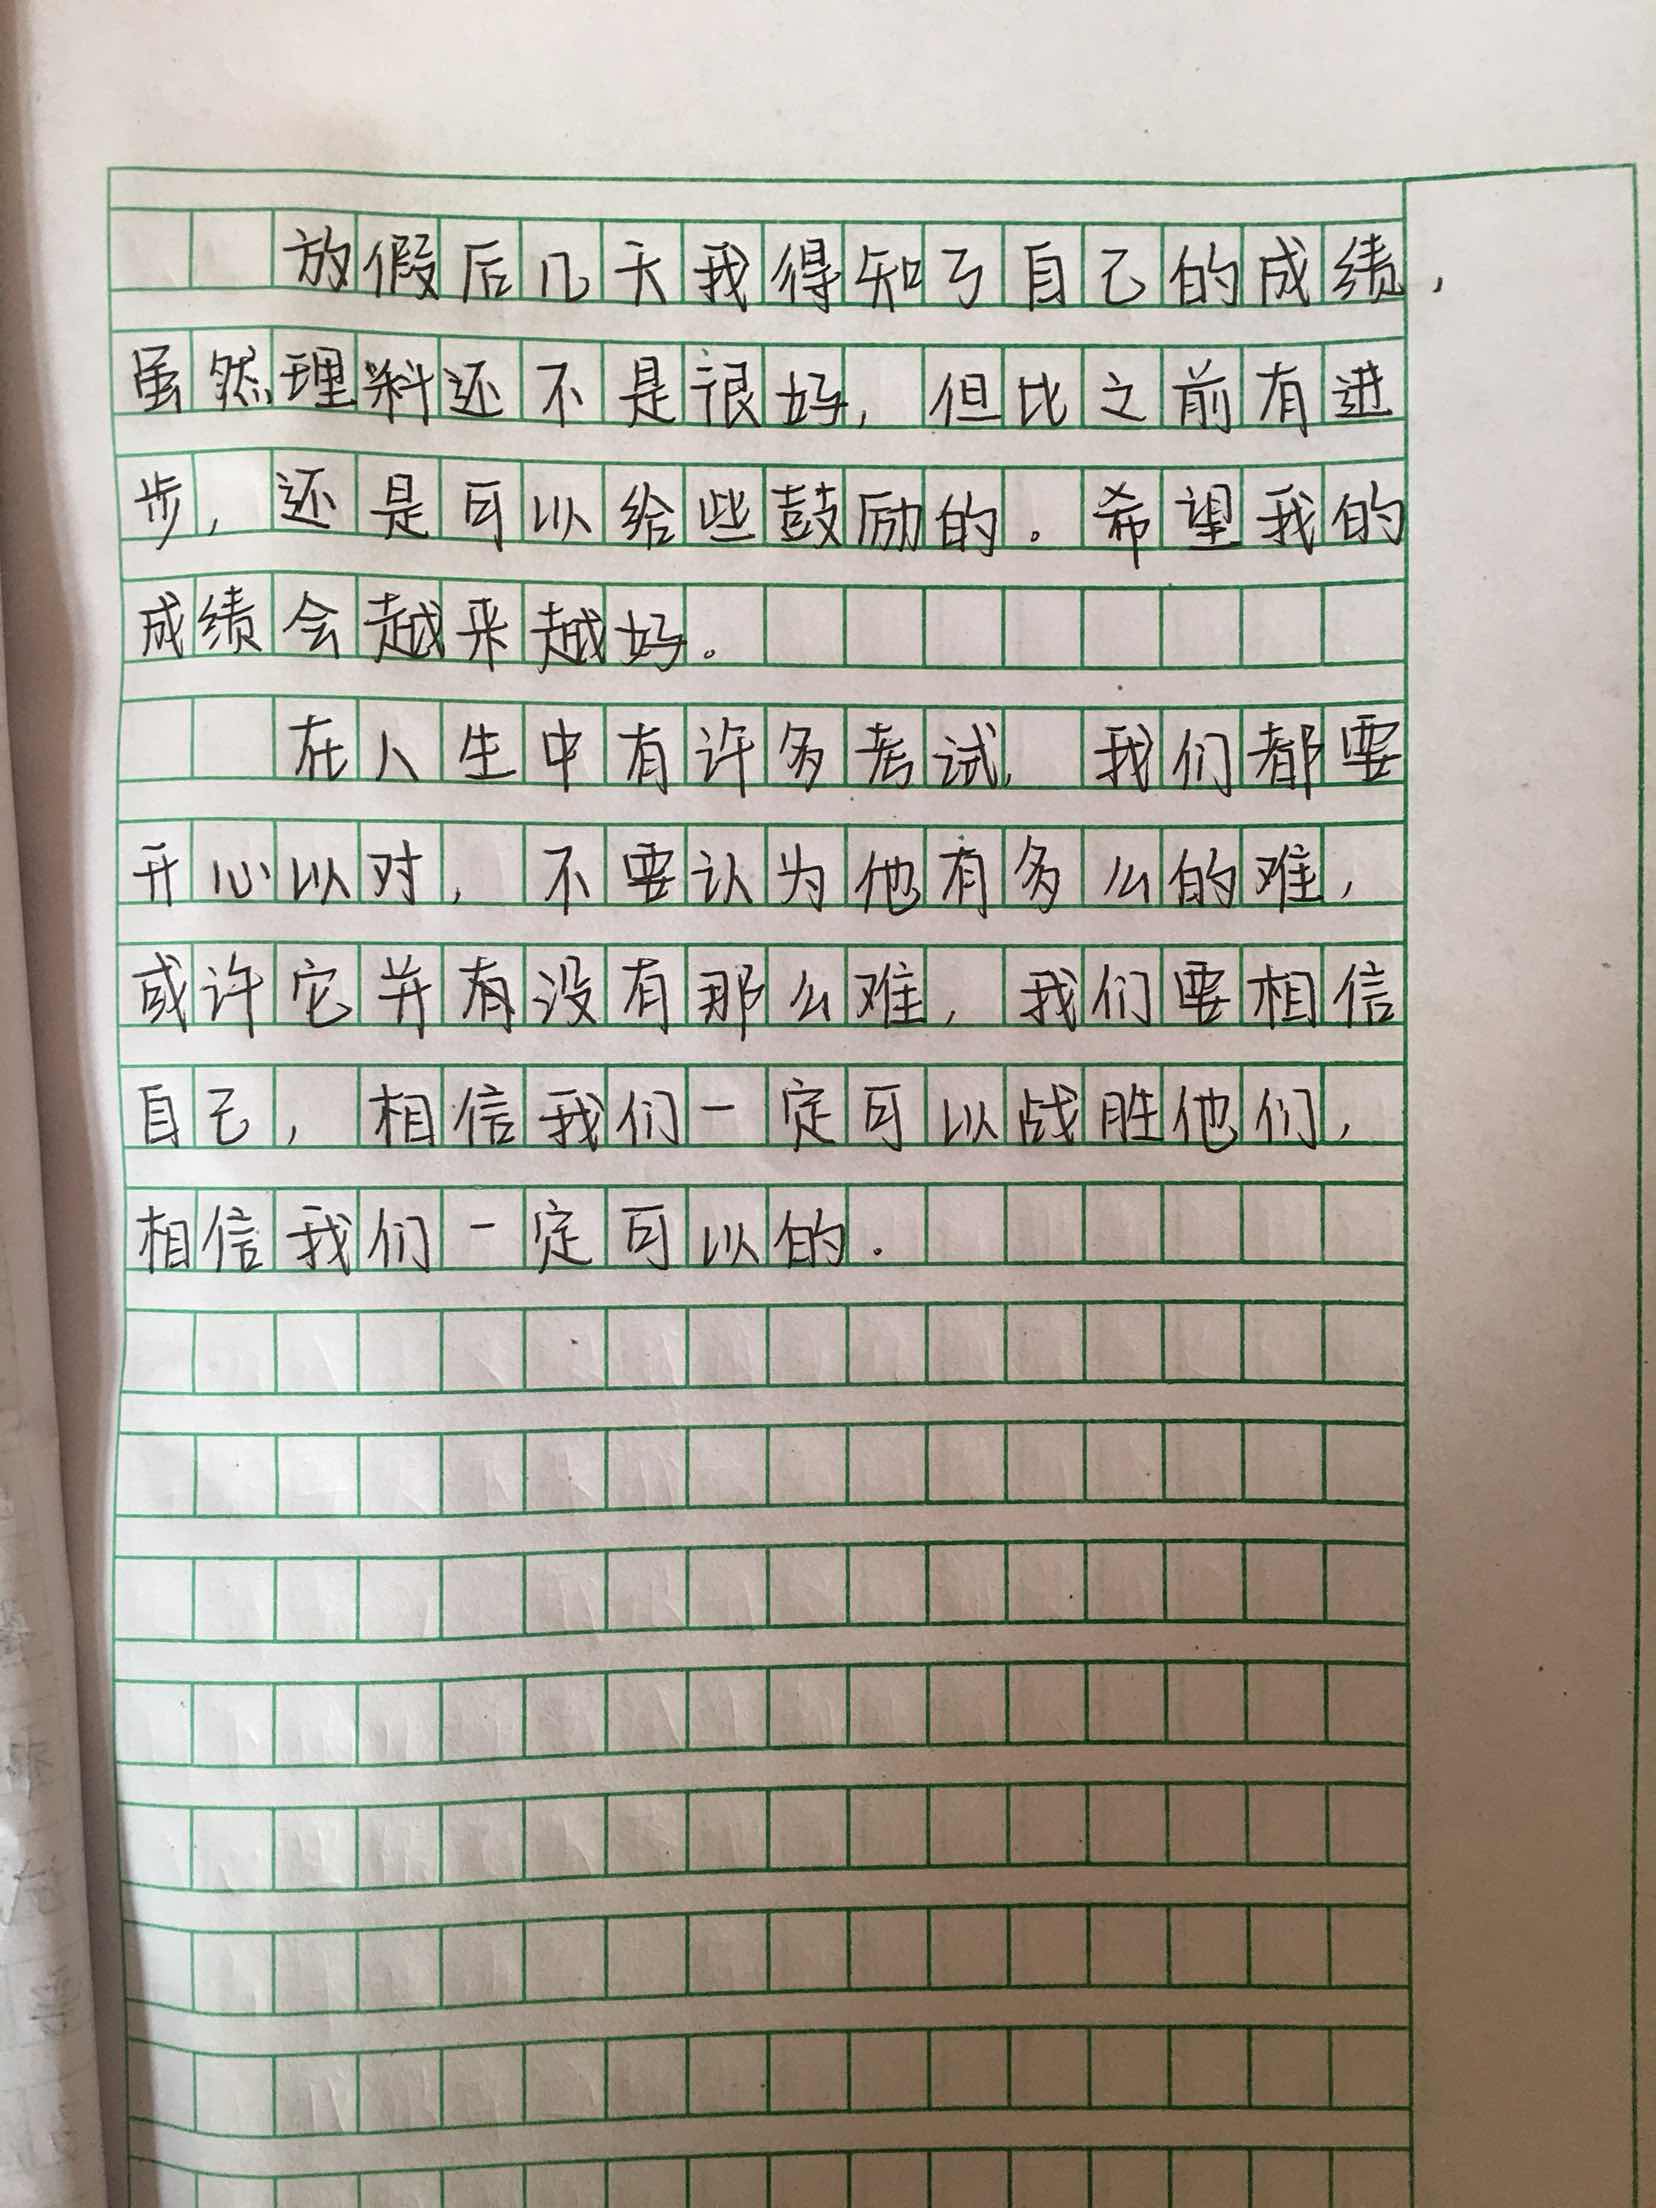 放假后几天我得知了自己的成绩,
虽然理科还不是很好,但比之前有进
步,还是可以给些鼓励的。希望我的
成绩会越来越好。
在人生中有许多考试,我们都要
开心以对,不要认为他有多么的难,
或许它并有没有那么难,我们要相信
自己,相信我们一定可以战胜他们,
相信我们一定可以的.